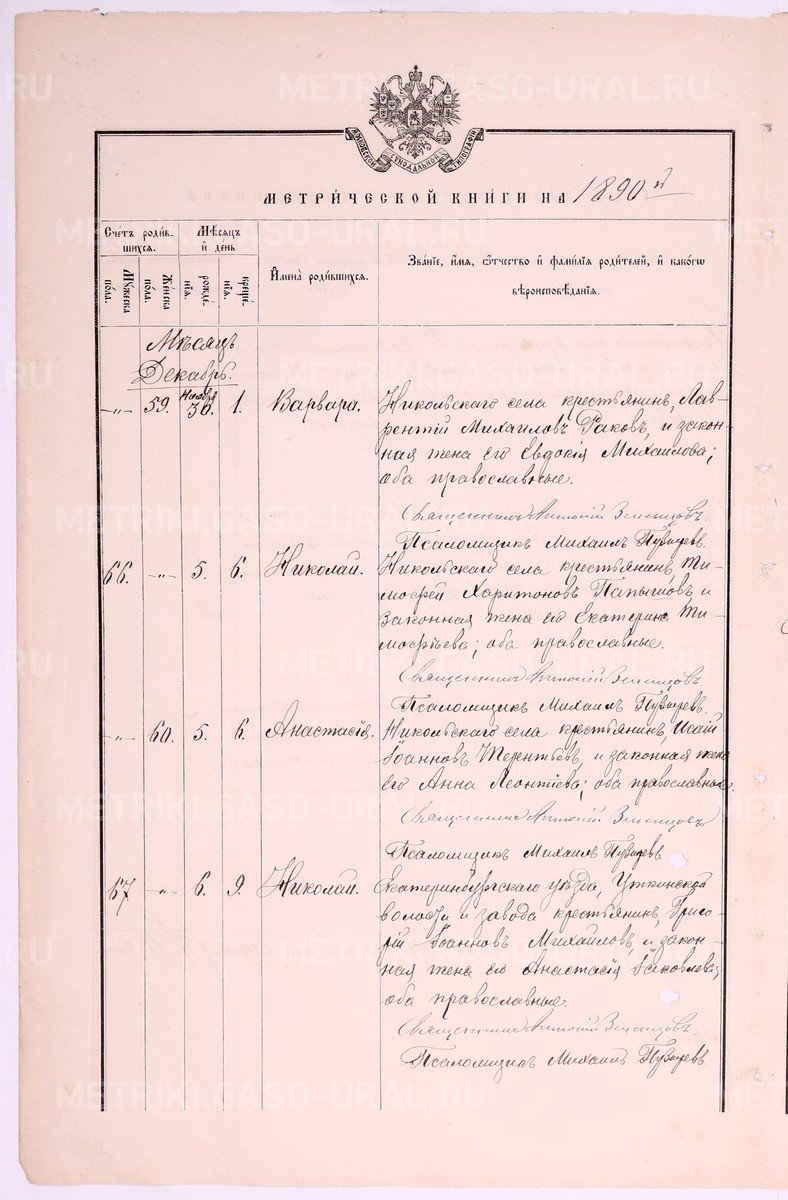 МОСКОВСКОЙ СѴНОДАЛЬНОЙ ТИПОГРАФІИ
МЕТРИ́ЧЕСКОЙ КНИ́ГИ НА 1890 й
Сче́тъ роди́в-
шихся.
Мѣ́сяцъ
и҆ де́нь
Мꙋ́жеска
по́ла.
Же́нска
по́ла.
рожде́-
нїѧ.
креще́-
нїѧ.
И҆мена̀ роди́вшихсѧ.
Зва́нїе, и҆́мѧ, ѻ҆́тчество и҆ фамилїѧ роди́телей, и҆ како́гѡ
вѣроисповѣ́данїѧ.
Мѣсяцъ
Декабрь.
-„- 59. Ноября 30. 1. Варвара. Никольскаго села крестьянинъ, Лав-
рентій Михаиловъ Раковъ, и закон-
ная жена его Евдокія Михаилова;
оба православные.
Священникъ Антоній
Псаломщикъ Михаилъ
66. -„- 5. 6. Николай. Никольскаго села крестьянинъ Ти-
мофей Харитоновъ Папышовъ и
законная жена его Екатерина Ти-
мофѣева; оба православные.
Священникъ Антоній
Псаломщикъ Михаилъ
-„- 60. 5. 6. Анастасія. Никольскаго села крестьянинъ, Исаій
Іоанновъ Терентьевъ, и законная жена
его Анна Леонтіева; оба православные.
Священникъ Антоній
Псаломщикъ Михаилъ
67 -„- 6. 9. Николай. Екатеринбургскаго уѣзда, Уткинской
волости и завода крестьянинъ, Григо-
рій Іоанновъ Михайловъ, и закон-
ная жена его Анастасія Іаковлева;
оба православные.
Священникъ Антоній
Псаломщикъ Михаилъ
METRIKI.GASO-URAL.RU